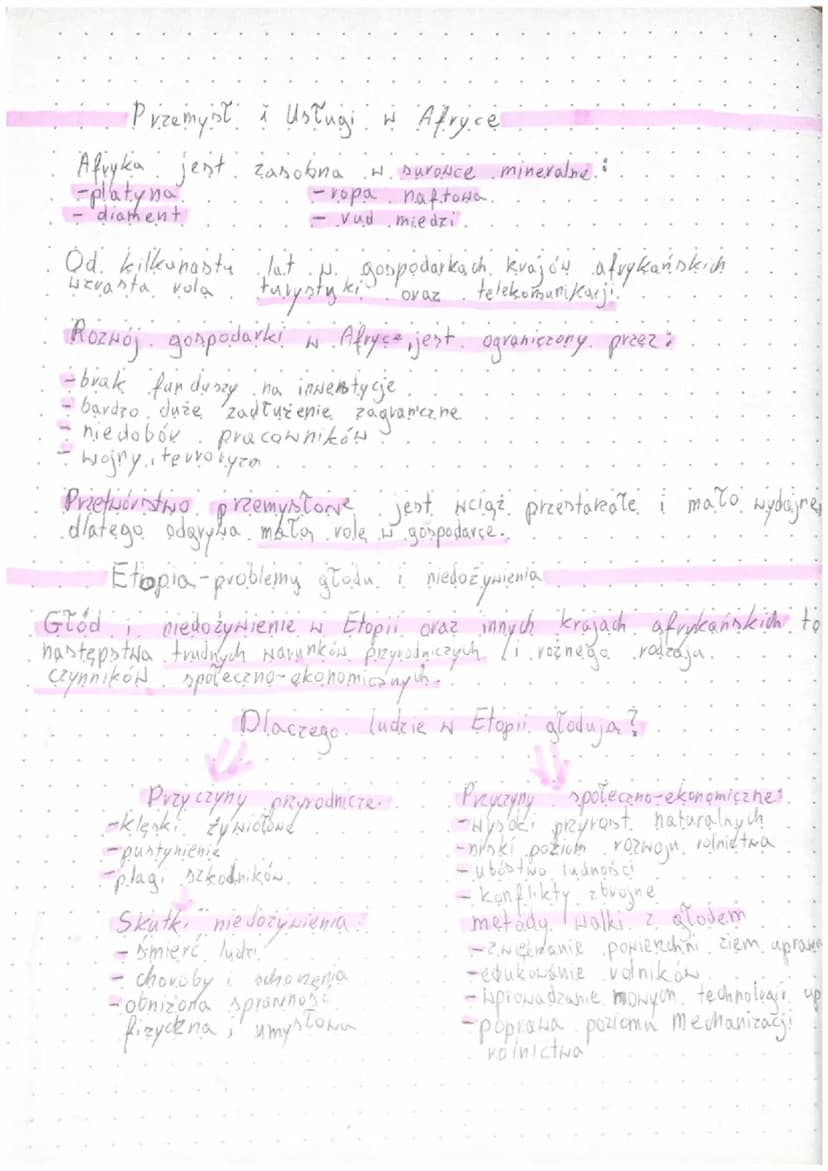 Przemysł i Usługi w Afryce
Afryka jest zasobna w surowce mineralne:
-platyna
- diament
- ropa naftowa
- rud miedzi
Od kilkunastu lat w gospodarkach krajów afrykańskich
wzrasta rola turystyki oraz telekomunikacji.
Rozwój gospodarki w Afryce jest ograniczony przez:
-brak funduszy na inwestycje
- bardzo duże zadłużenie zagraniczne
- niedobór pracowników
- wojny, terroryzm
Przetwórstwo przemysłowe jest wciąż przestarzałe i mało wydajne,
dlatego odgrywa małą rolę w gospodarce.
Etopia-problemy głodu i niedożywienia
Głód i niedożywienie w Etopii oraz innych krajach afrykańskich to
następstwa trudnych warunków przyrodniczych i różnego rodzaju
czynników społeczno-ekonomicznych.
Dlaczego ludzie w Etopii głodują?
Przyczyny przyrodnicze
-klęski żywiołowe
-pustynienie
-plagi szkodników
Skutki niedożywienia:
- śmierć ludzi
- choroby i
-obniżona sprawność
fizyczna i umysłowa
Przyczyny społeczno-ekonomiczne:
-wysoki przyrost naturalnych
-niski poziom rozwoju rolnictwa
- ubóstwo ludności
- konflikty zbrojne
metody walki z głodem
-zwiększanie powierzchni ziem
-edukowanie rolników
-wprowadzanie nowych technologii up
-poprawa poziomu mechanizacji
rolnictwa